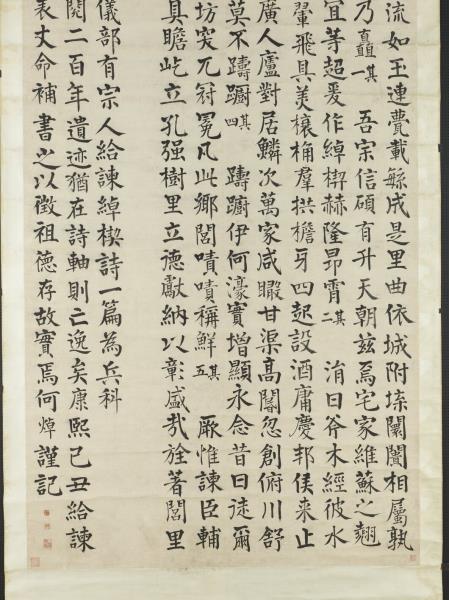 流如玉連甍載緜成是里曲依城附埭闤闠相屬孰
乃矗其一 吾宗信碩有升天朝茲焉宅家維蘇之翹
宜等超爰作綽楔赫隆昂霄其二 涓日斧木經彼水
翬飛具美榱桷羣拱檐牙四起設酒庸慶邦侯來止
廣人廬對居鱗次萬家咸瞰甘渠高閣忽創俯川舒
莫不躊躕其四 躊躕伊何濠實增顯永念昔日徒爾
坊突兀冠冕凡此鄉閭嘖嘖稱鮮其五 厥惟諫臣輔
具瞻屹立孔强樹里立德獻納以彰盛哉旌著閭里
儀部有宗人給諫綽楔詩一篇為兵科
閱二百年遺迹猶在詩軸則亡逸矣康熙己丑給諫
表丈命補書之以徵祖德存故實焉何焯謹記